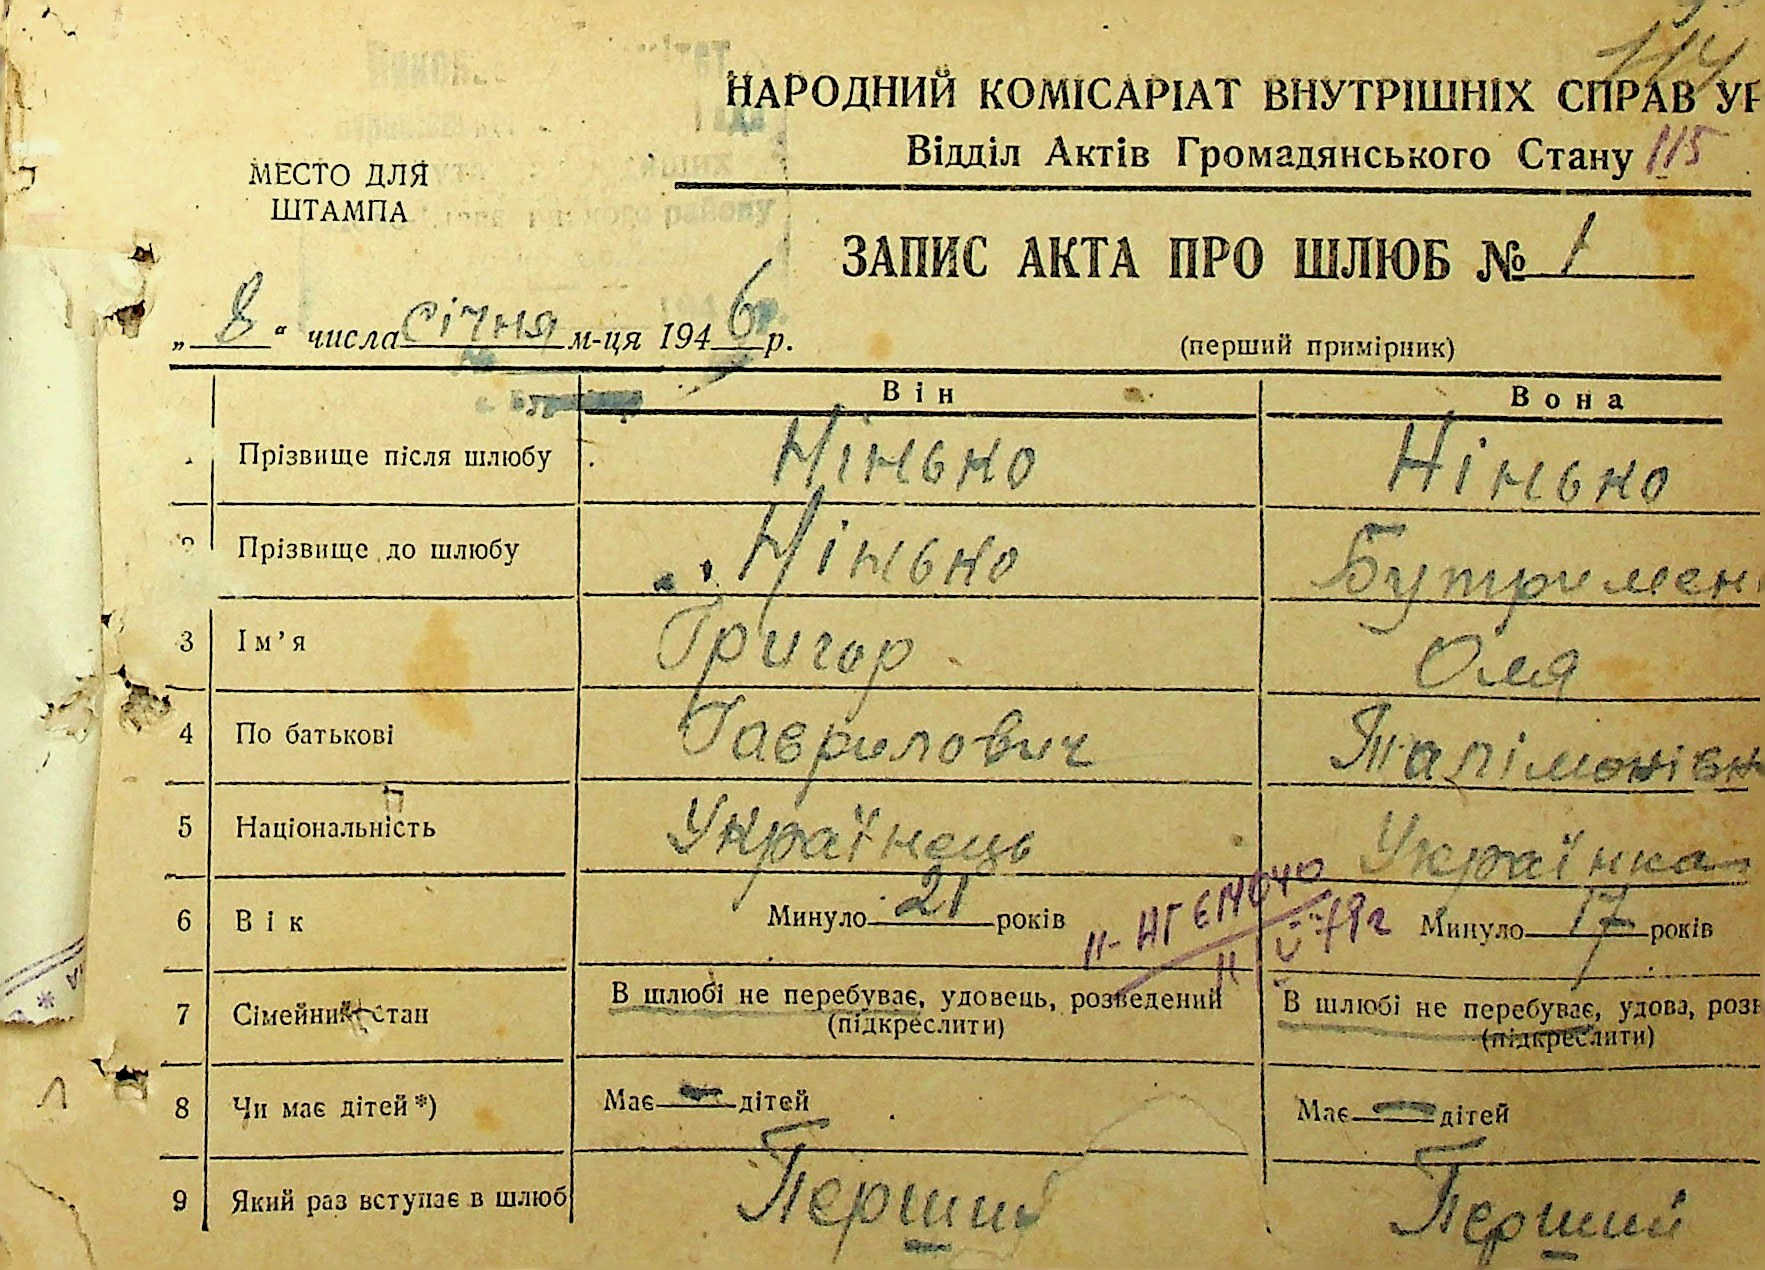 114
НАРОДНИЙ КОМІСАРІАТ ВНУТРІШНІХ СПРАВ УР
Відділ Актів Громадянського Стану 115
МЕСТО ДЛЯ
ШТАМПА
ЗАПИС АКТА ПРО ШЛЮБ № 1
„ 8 “ числа січня м-ця 1946 р.
(перший примірник)
Він Вона
Прізвище після шлюбу Нінько Нінько
2 Прізвище до шлюбу Нінько Бутримен
3 Ім’я Григор Оля
4 По батькові Гаврилович Талімонівн
5 Національність Українець Українка
6 Вік Минуло 21 років Минуло 17 років
7 Сімейний стан В шлюбі не перебуває, удовець, розведений В шлюбі не перебуває, удова, розв
(підкреслити) (підкреслити)
8 Чи має дітей*) Має — дітей Має — дітей
9 Який раз вступає в шлюб Перший Перший